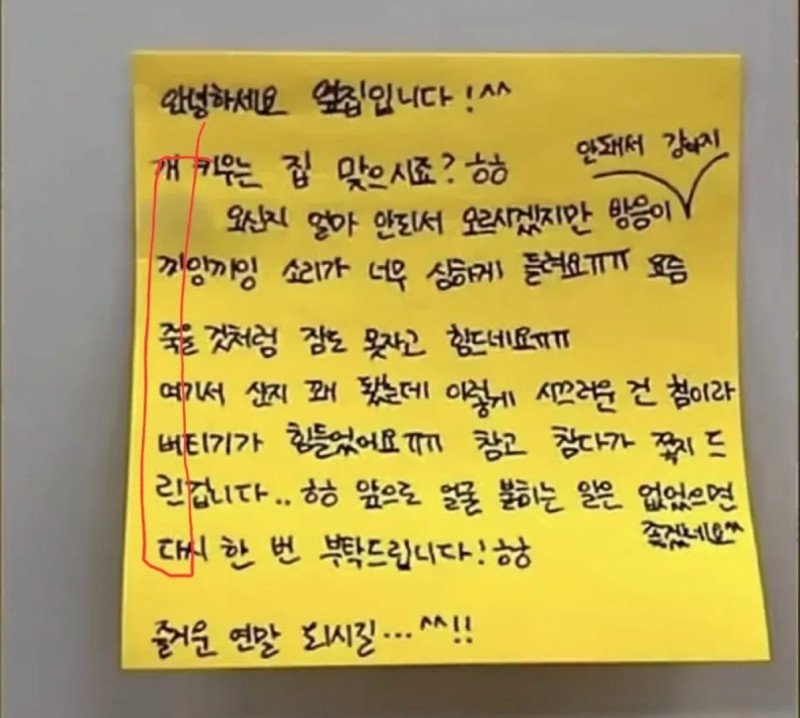 안녕하세요 옆집입니다!^^
개 키우는 집 맞으시죠?ㅎㅎ
안돼서 강아지
오신지 얼마 안되서 모르시겠지만 방음이
끼잉끼잉 소리가 너무 심하게 들려요ㅠㅠ 요즘
죽을 것처럼 잠도 못자고 힘드네요ㅠㅠ
여기서 산지 꽤 됐는데 이렇게 시끄러운 건 첨이라
버티기가 힘들었어요ㅠㅠ 참고 참다가 쪽지 드
린겁니다.. ㅎㅎ 앞으로 얼굴 붉히는 일은 없었으면
좋겠네요^^
다시 한 번 부탁드립니다!ㅎㅎ
즐거운 연말 되시길...^^!!